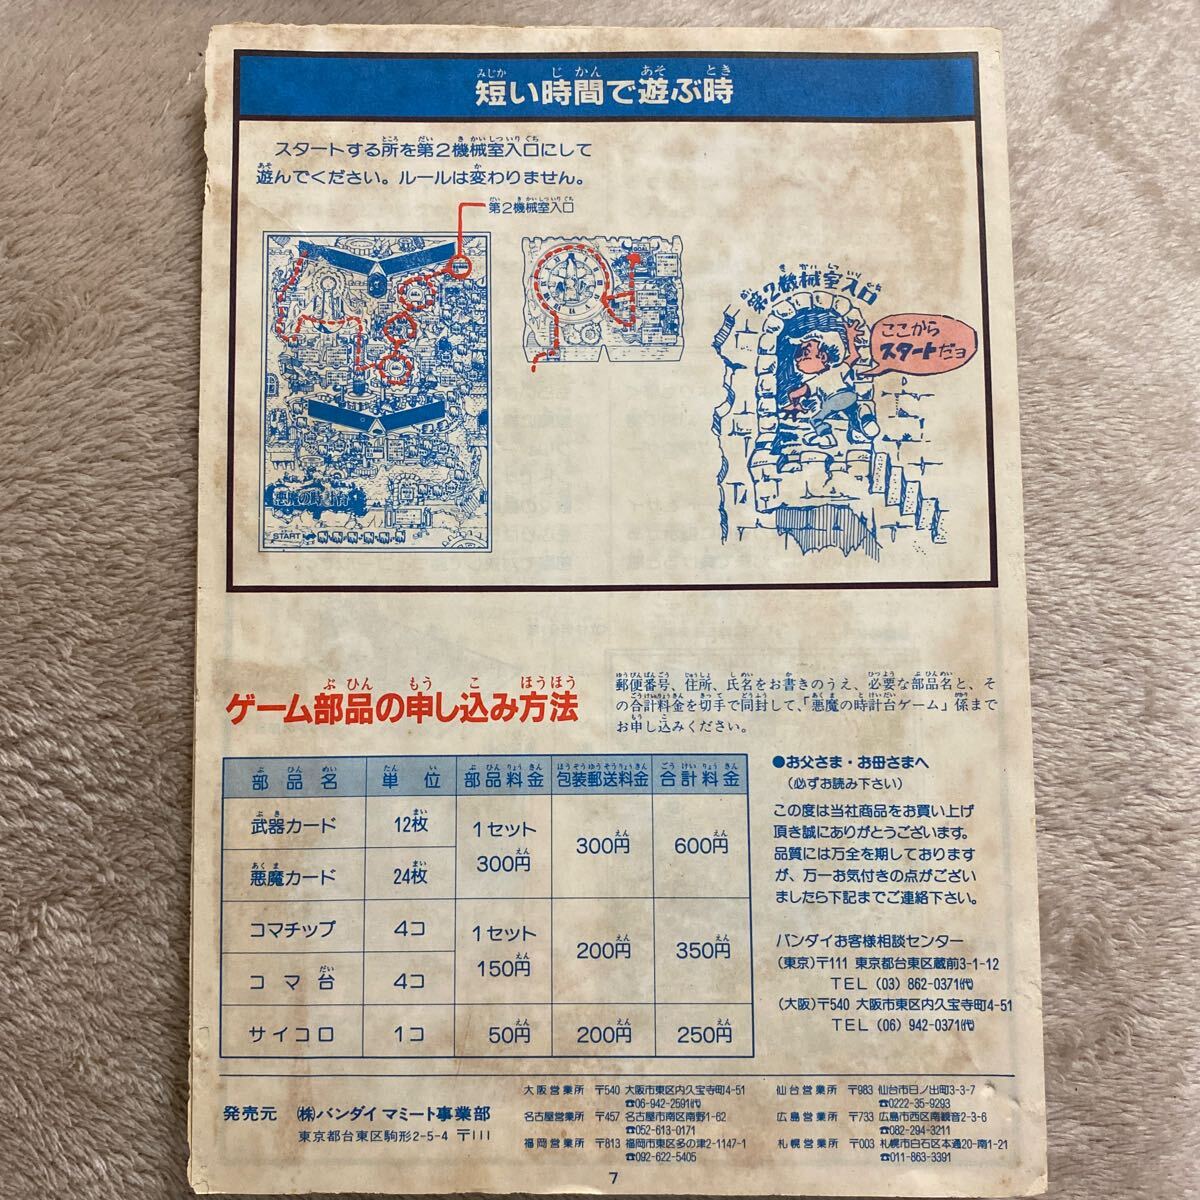 短い時間で遊ぶ時
みじか じかん あそ とき
スタートする所を第2機械室入口にして
遊んでください。ルールは変わりません。
第2機械室入口
GOAL
悪魔の時計台
START
第2機械室入口
ここから
スタートだヨ
ゲーム部品の申し込み方法
ぶひん もう こ ほうほう
郵便番号、住所、氏名をお書きのうえ、必要な部品名と、そ
の合計料金を切手で同封して、「悪魔の時計台ゲーム」係まで
お申し込みください。
部品名 単位 部品料金 包装郵送料金 合計料金
武器カード 12枚 1セット 300円 300円 600円
悪魔カード 24枚
コマチップ 4コ 1セット 150円 200円 350円
コマ台 4コ
サイコロ 1コ 50円 200円 250円
●お父さま・お母さまへ
(必ずお読み下さい)
この度は当社商品をお買い上げ
頂き誠にありがとうございます。
品質には万全を期しております
が、万一お気付きの点がござい
ましたら下記までご連絡下さい。
バンダイお客様相談センター
(東京)〒111 東京都台東区蔵前3-1-12
TEL (03) 862-0371㈹
(大阪)〒540 大阪市東区内久宝寺町4-51
TEL (06) 942-0371㈹
発売元 (株)バンダイ マミート事業部
東京都台東区駒形2-5-4 〒111
大阪営業所 〒540 大阪市東区内久宝寺町4-51
☎06-942-2591㈹
名古屋営業所 〒457 名古屋市南区南野1-62
☎052-613-0171
福岡営業所 〒813 福岡市東区多の津2-1147-1
☎092-622-5405
仙台営業所 〒983 仙台市日ノ出町3-3-7
☎0222-35-9293
広島営業所 〒733 広島市西区南観音2-3-6
☎082-294-3211
札幌営業所 〒003 札幌市白石区本通20-南1-21
☎011-863-3391
7